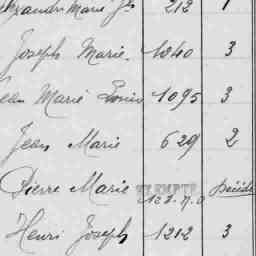 Marie Jh 212 1
Joseph Marie 1040 3
Jean Marie Louis 1095 3
Jean Marie 629 2
Pierre Marie EXEMPTÉ Décédé
Henri Joseph 1212 3